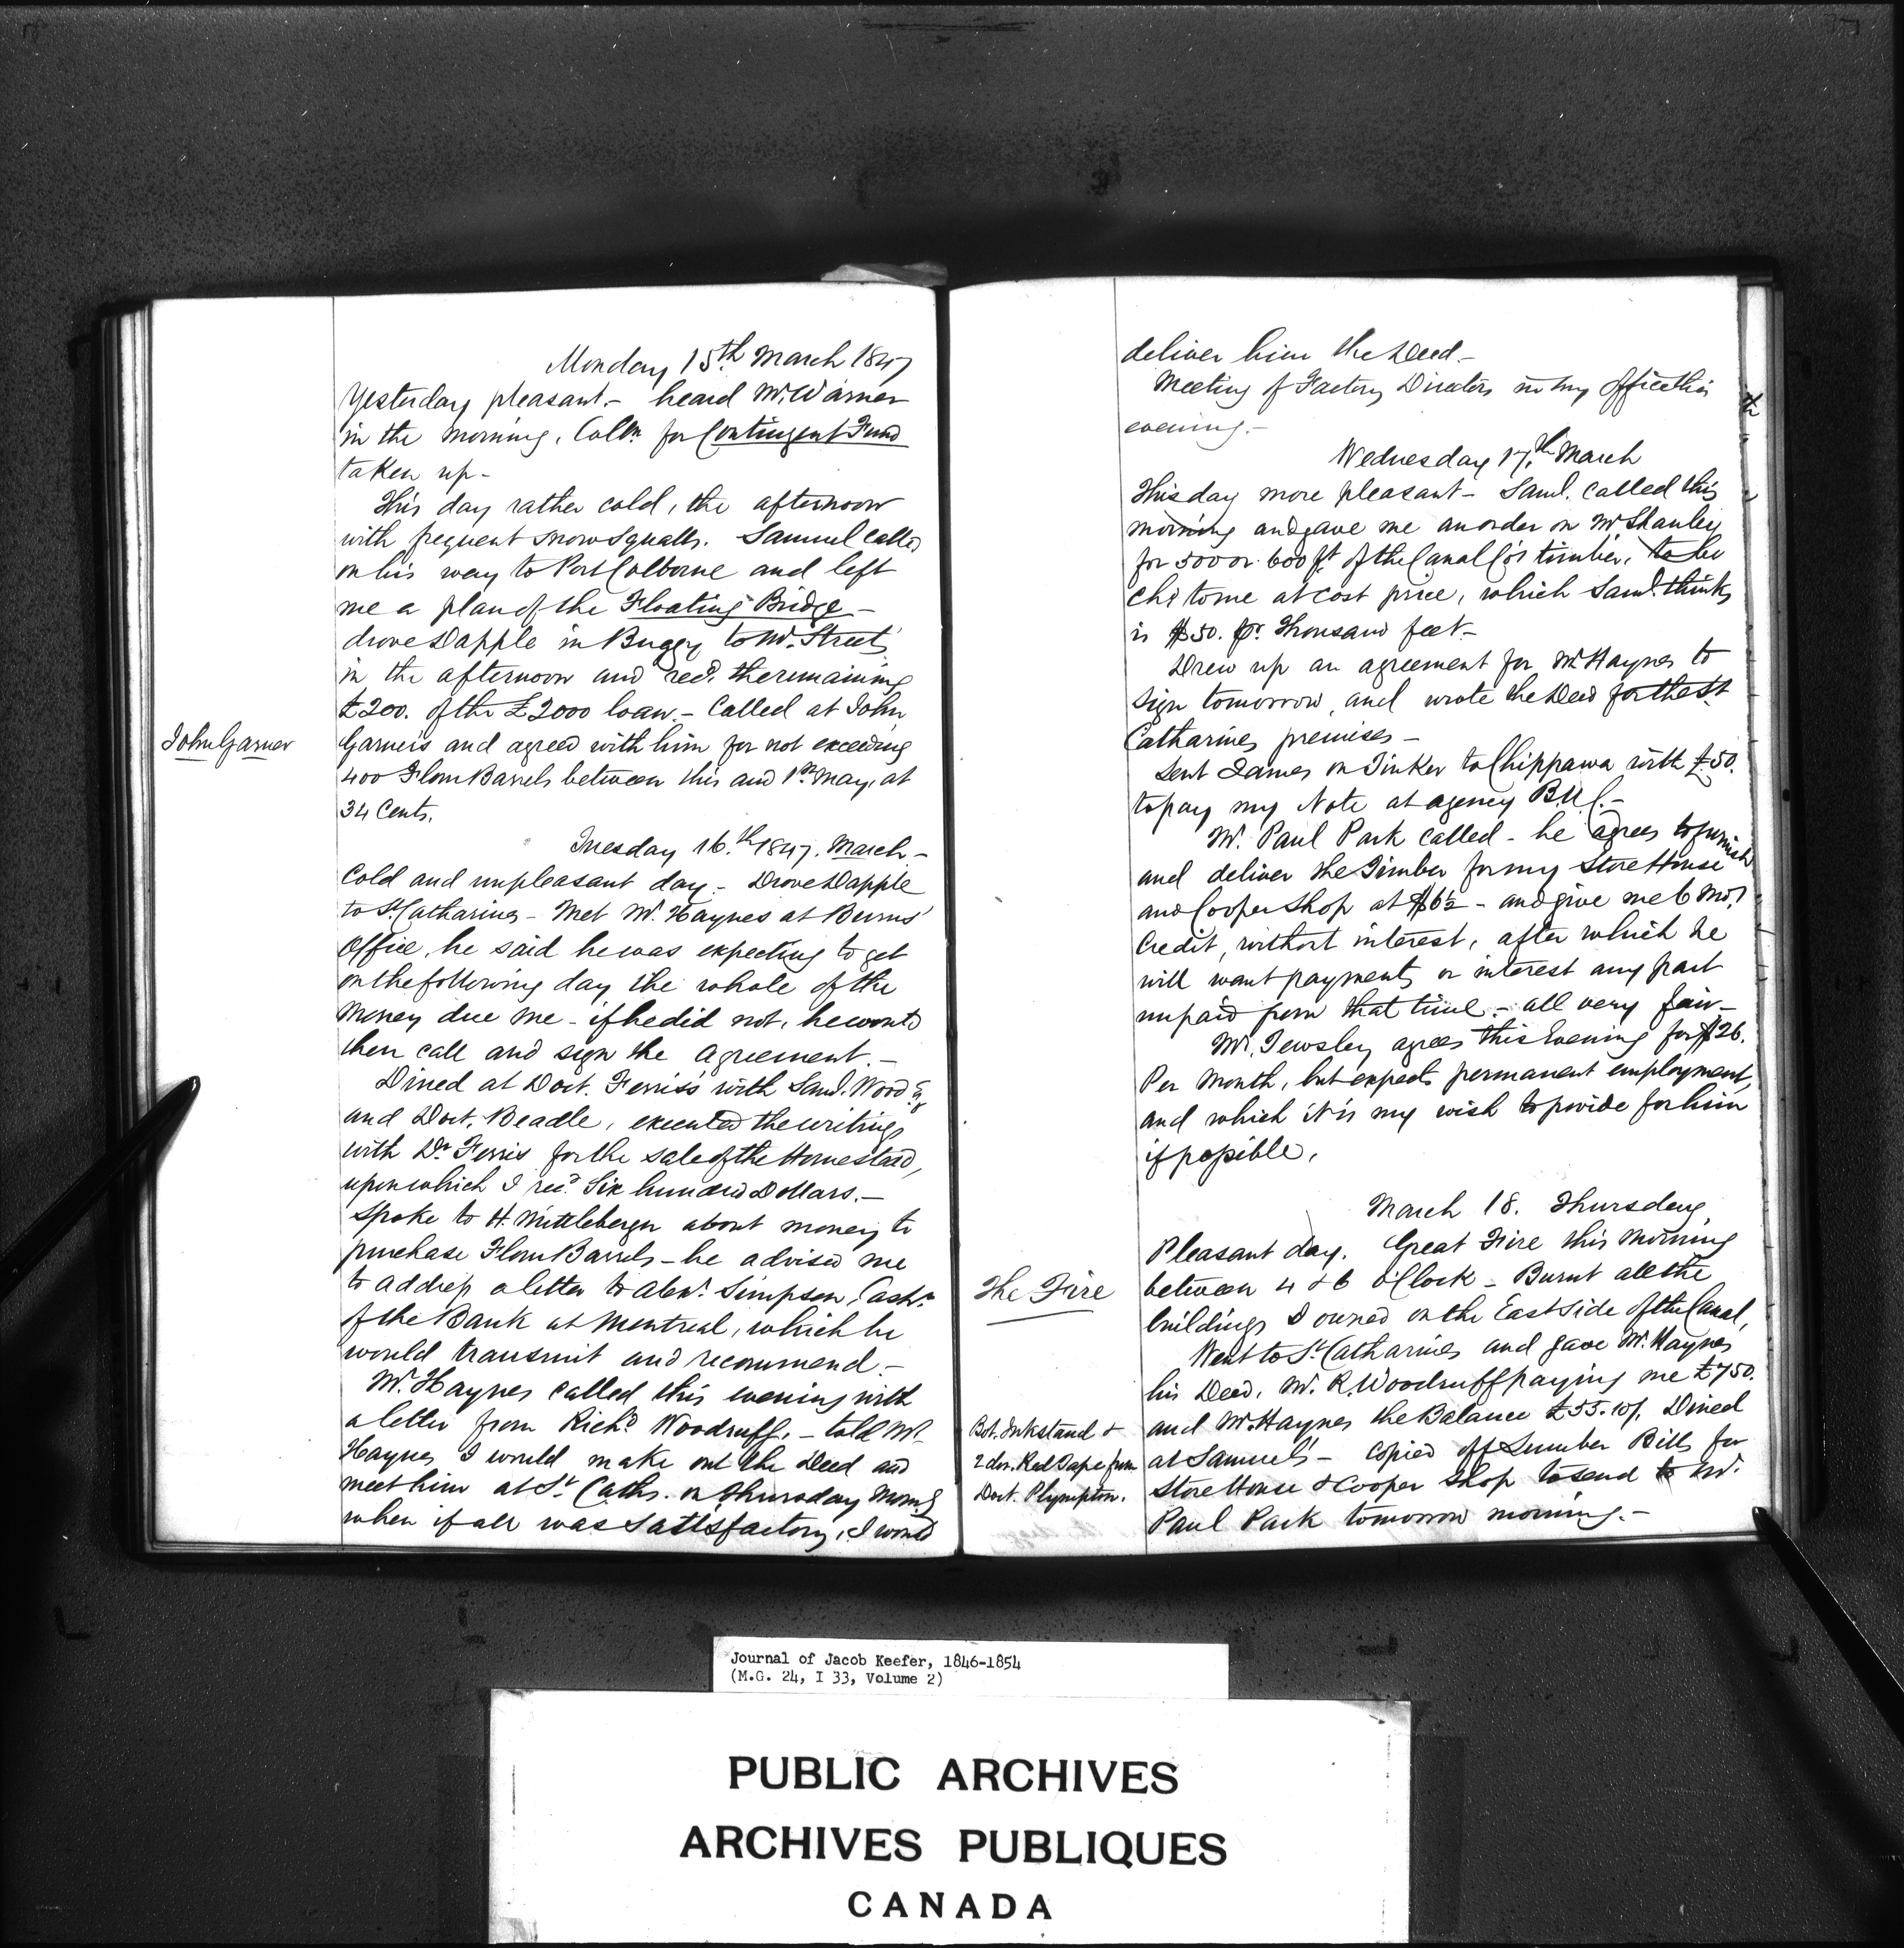 Monday 15th March 1847
Yesterday pleasant.- heard Mr. Warner
in the morning, Colln. for Contingent Fund
taken up -
This day rather cold, the afternoon
with frequent snow squalls. Samuel called
on his way to Port Colborne and left
me a plan of the Floating Bridge -
drove Dapple in Buggy to Mr. Street's
in the afternoon and recd. the remaining
£200. of the £2000 loan.- Called at John
John Garner
Garner's and agreed with him for not exceeding
400 Flour Barrels between this and 1st May, at
34 Cents.
Tuesday 16.th 1847. March.-
Cold and unpleasant day.- Drove Dapple
to St. Catharines - Met Mr. Haynes at Burns'
Office, he said he was expecting to get
on the following day the whole of the
money due me - if he did not, he would
then call and sign the Agreement.-
Dined at Doct. Ferris's with Saml. Wood
and Doct. Beadle, executed the writings
with Dr. Ferris for the sale of the Homestead,
upon which I recd. Six hundred Dollars.-
Spoke to H. Mittleberger about money to
purchase Flour Barrels - he advised me
to address a letter to Alexr. Simpson, Cashr.
of the Bank at Montreal, which he
would transmit and recommend.-
Mr. Haynes called this evening with
a letter from Richd. Woodruff.- told Mr.
Haynes I would make out the Deed and
meet him at St. Caths. on Thursday Morng
when if all was Satisfactory, I would
deliver him the Deed.-
Meeting of Factory Directors in my Office this
evening.-
Wednesday 17.th March
This day more pleasant - Saml. called this
morning and gave me an order on Mr Shanley
for 500 or 600 ft. of the Canal Co's timber, to be
chd to me at cost price, which Saml. thinks
is $50. pr. Thousand feet -
Drew up an agreement for Mr. Haynes to
sign tomorrow, and wrote the Deed for the St.
Catharines premises -
Sent James on Tinker to Chippawa with £50.
to pay my Note at agency B.U.C.-
Mr. Paul Park called - he agrees to furnish
and deliver the Timber for my Store House
and Cooper Shop at $6½ - and give me 6 mos.
Credit, without interest, after which he
will want payment, or interest any part
unpaid from that time.- all very fair -
Mr. Tewsley agrees this Evening for $26.
Per Month, but expects permanent employment,
and which it is my wish to provide for him
if possible.
March 18. Thursday
Pleasant day. Great Fire this Morning
The Fire
between 4 & 6 o'Clock - Burnt all the
buildings I owned on the East side of the Canal,
Went to St. Catharines and gave Mr. Haynes
his Deed, Mr. R. Woodruff paying me £750.
and Mr. Haynes the Balance £55.10/. Dined
Bot. Inkstand &
2 doz. Red Tape from
Doct. Plympton.
at Samuel's - copied off Lumber Bills for
Store House & Cooper Shop to send to Mr.
Paul Park tomorrow morning.-
Journal of Jacob Keefer, 1846-1854
(M.G. 24, I 33, Volume 2)
PUBLIC ARCHIVES
ARCHIVES PUBLIQUES
CANADA